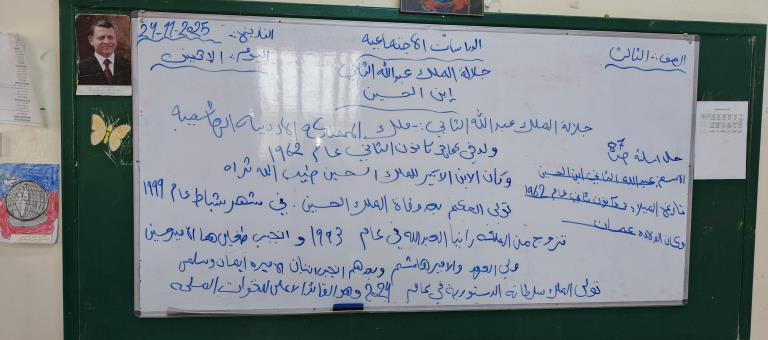 الصف: الثالث
الدراسات الاجتماعية
التاريخ: 24-11-2025
اليوم: الاثنين
جلالة الملك عبدالله الثاني
إبن الحسين
جلالة الملك عبدالله الثاني:- ملك المملكة الأردنية الهاشمية
ولد في عمان كانون الثاني عام 1962
وكان الابن الأكبر للملك الحسين طيب الله ثراه
تولى الحكم بعد وفاة الملك الحسين في شهر شباط عام 1999
تزوج من الملكة رانيا العبدالله في عام 1993 و انجب طفلين هما الأمير حسين
ولي العهد والامير هاشم وبعدهم انجب ابنتان الاميرة ايمان وسلمى
تولى الملك سلطاته الدستورية في عام وهو القائد الاعلى للقوات المسلحة
حل اسئلة ص 87
الاسم: عبدالله الثاني ابن الحسين
تاريخ الميلاد: كانون ثاني عام 1962
مكان الولادة عمان